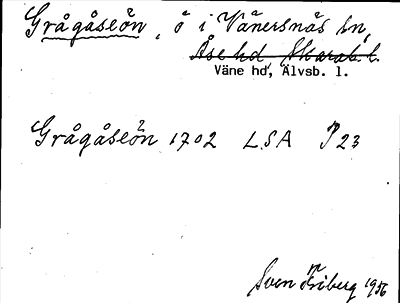 Grågåseön, ö i Vänersnäs sn,
Åse hd Skarab. l.
Väne hd, Älvsb. l.
Grågåseön 1702 LSA P 23
Sven Friberg 1956